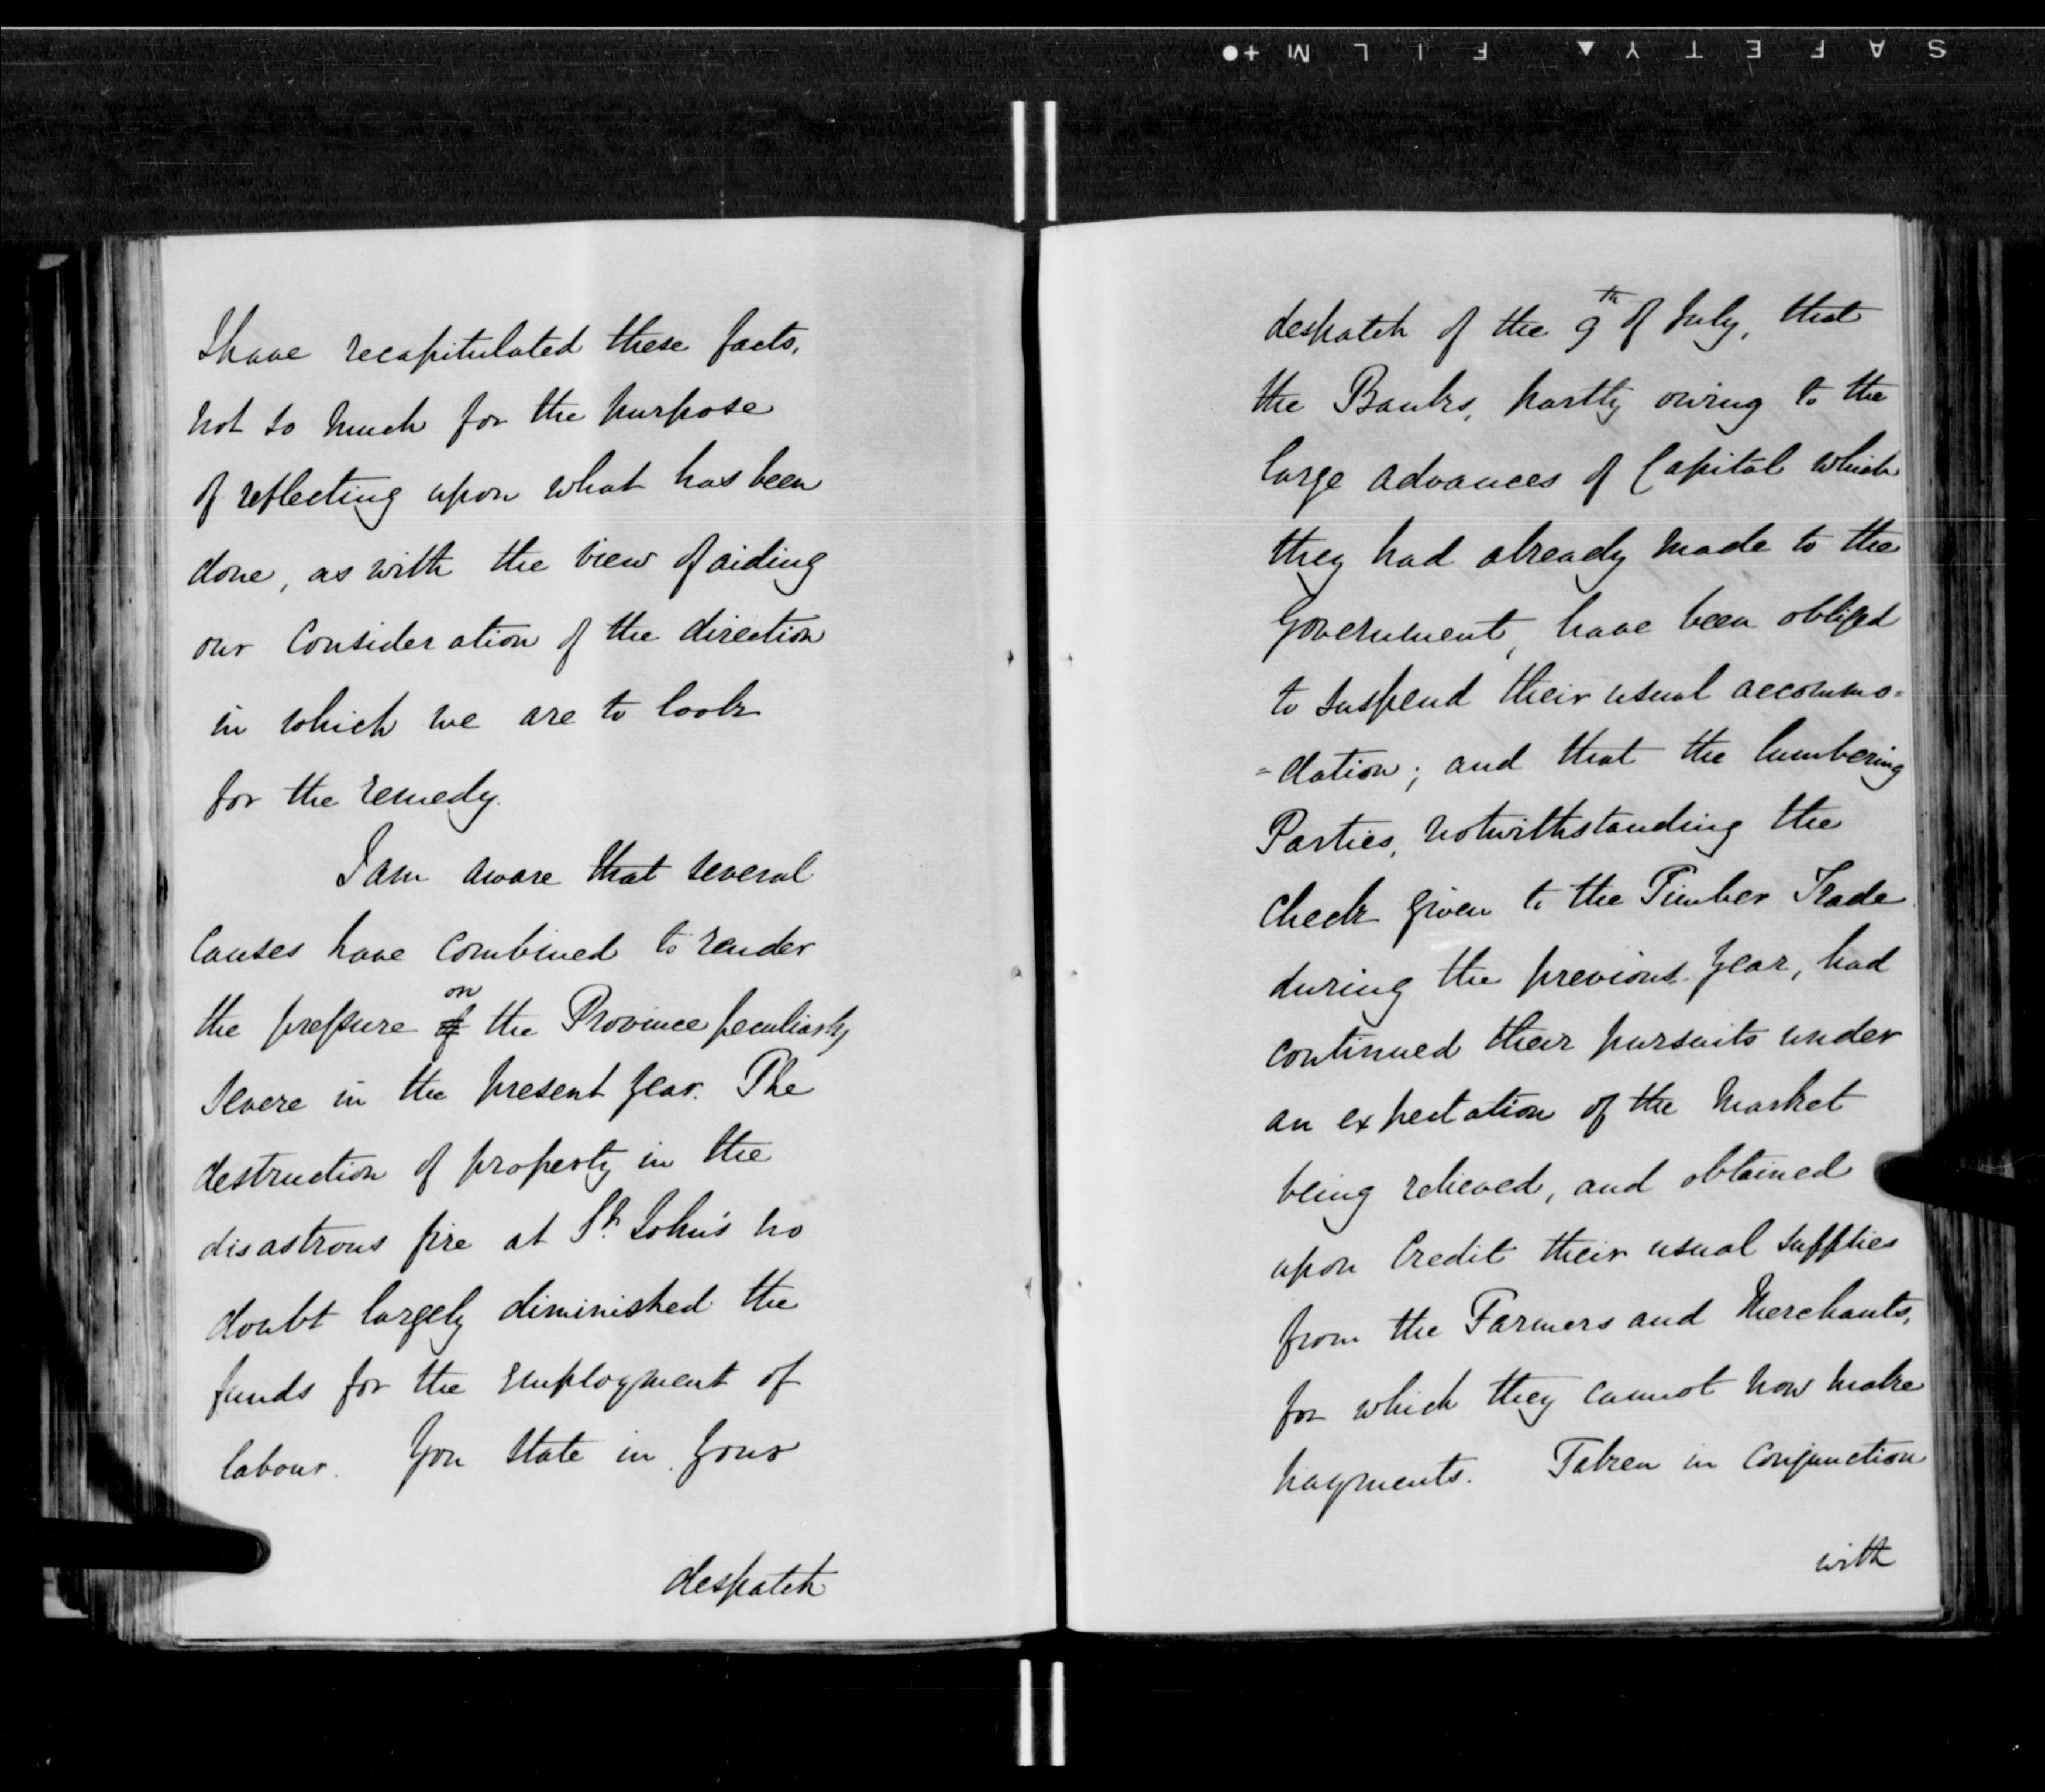 SAFETY▲FILM+●
I have recapitulated these facts,
not so much for the purpose
of reflecting upon what has been
done, as with the view of aiding
our Consideration of the direction
in which we are to look
for the remedy.
I am aware that several
Causes have Combined to render
the pressure of on the Province peculiarly
severe in the present year. The
destruction of property in the
disastrous fire at St. John's no
doubt largely diminished the
funds for the employment of
labour. You state in your
despatch
despatch of the 9th of July, that
the Banks, partly owing to the
large advances of Capital which
they had already made to the
Government, have been obliged
to suspend their usual accommo=
=dation; and that the lumbering
Parties, notwithstanding the
Check given to the Timber Trade
during the previous year, had
continued their pursuits under
an expectation of the Market
being relieved, and obtained
upon Credit their usual supplies
from the Farmers and Merchants,
for which they cannot now make
payments. Taken in Conjunction
with